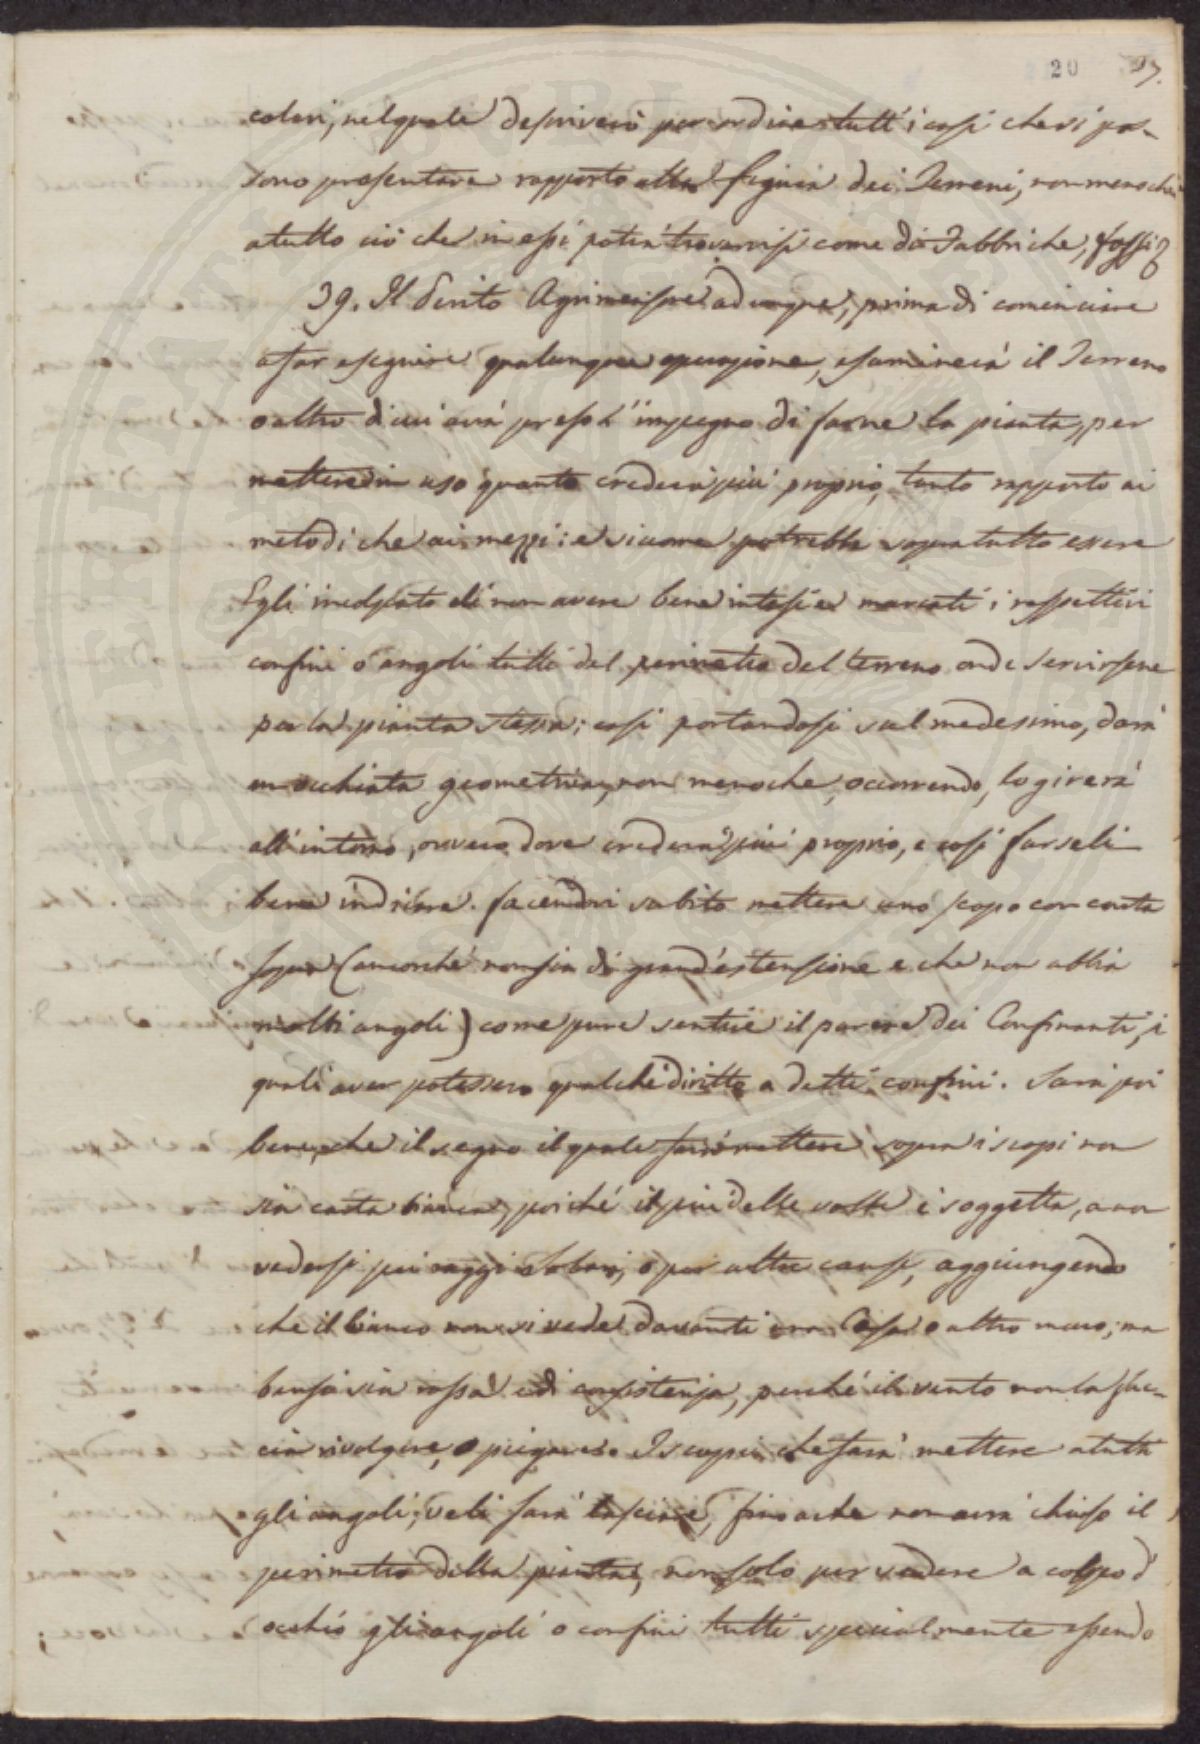 20 27.
colari, nel quale descriverò per ordine tutt'i casi che si pos-
sono presentare rapporto alla figura dei Terreni, non meno che
a tutto ciò che in essi potrà trovarvisi come di Fabbriche, fossi
39. Il Perito Agrimensore adunque, prima di cominciare
a far eseguire qualunque operazione, esaminerà il Terreno
o altro di cui avrà preso l'impegno di farne la pianta, per
mettere in uso quanto crederà più proprio, tanto rapporto ai
metodi che ai mezzi: e siccome potrebbe sopra tutto essere
Egli incolpato di non avere bene intesi e marcati i rispettivi
confini o angoli tutti del perimetro del terreno onde servirsene
per la pianta stessa; così portandosi sul medesimo, darà
un occhiata geometrica, non meno che, occorrendo, lo girerà
all'intorno, ovvero dove crederà più proprio, e così farseli
bene indicare. facendovi subito mettere uno scopo con carta
sopra (ancorché non sia di grand'estensione e che non abbia
molti angoli) come pure sentire il parere dei Confinanti, i
quali aver potessero qualche diritto a detti confini. Sarà poi
bene, che il segno il quale farà mettere sopra i scopi non
sia carta bianca, poiché il più delle volte è soggetta, a non
vedersi pei raggi Solari, o per altre cause, aggiungendo
che il bianco non si vede davanti una Casa o altro muro; ma
bensì sia rossa e di consistenza, perché il vento non la fac-
cia rivolgere, o piegare. I scopi che farà mettere a tutti
gli angoli, ve li farà lasciare, fino a che non avrà chiuso il
perimetro della pianta, non solo per vedere a colpo d'
occhio gli angoli o confini tutti specialmente essendo